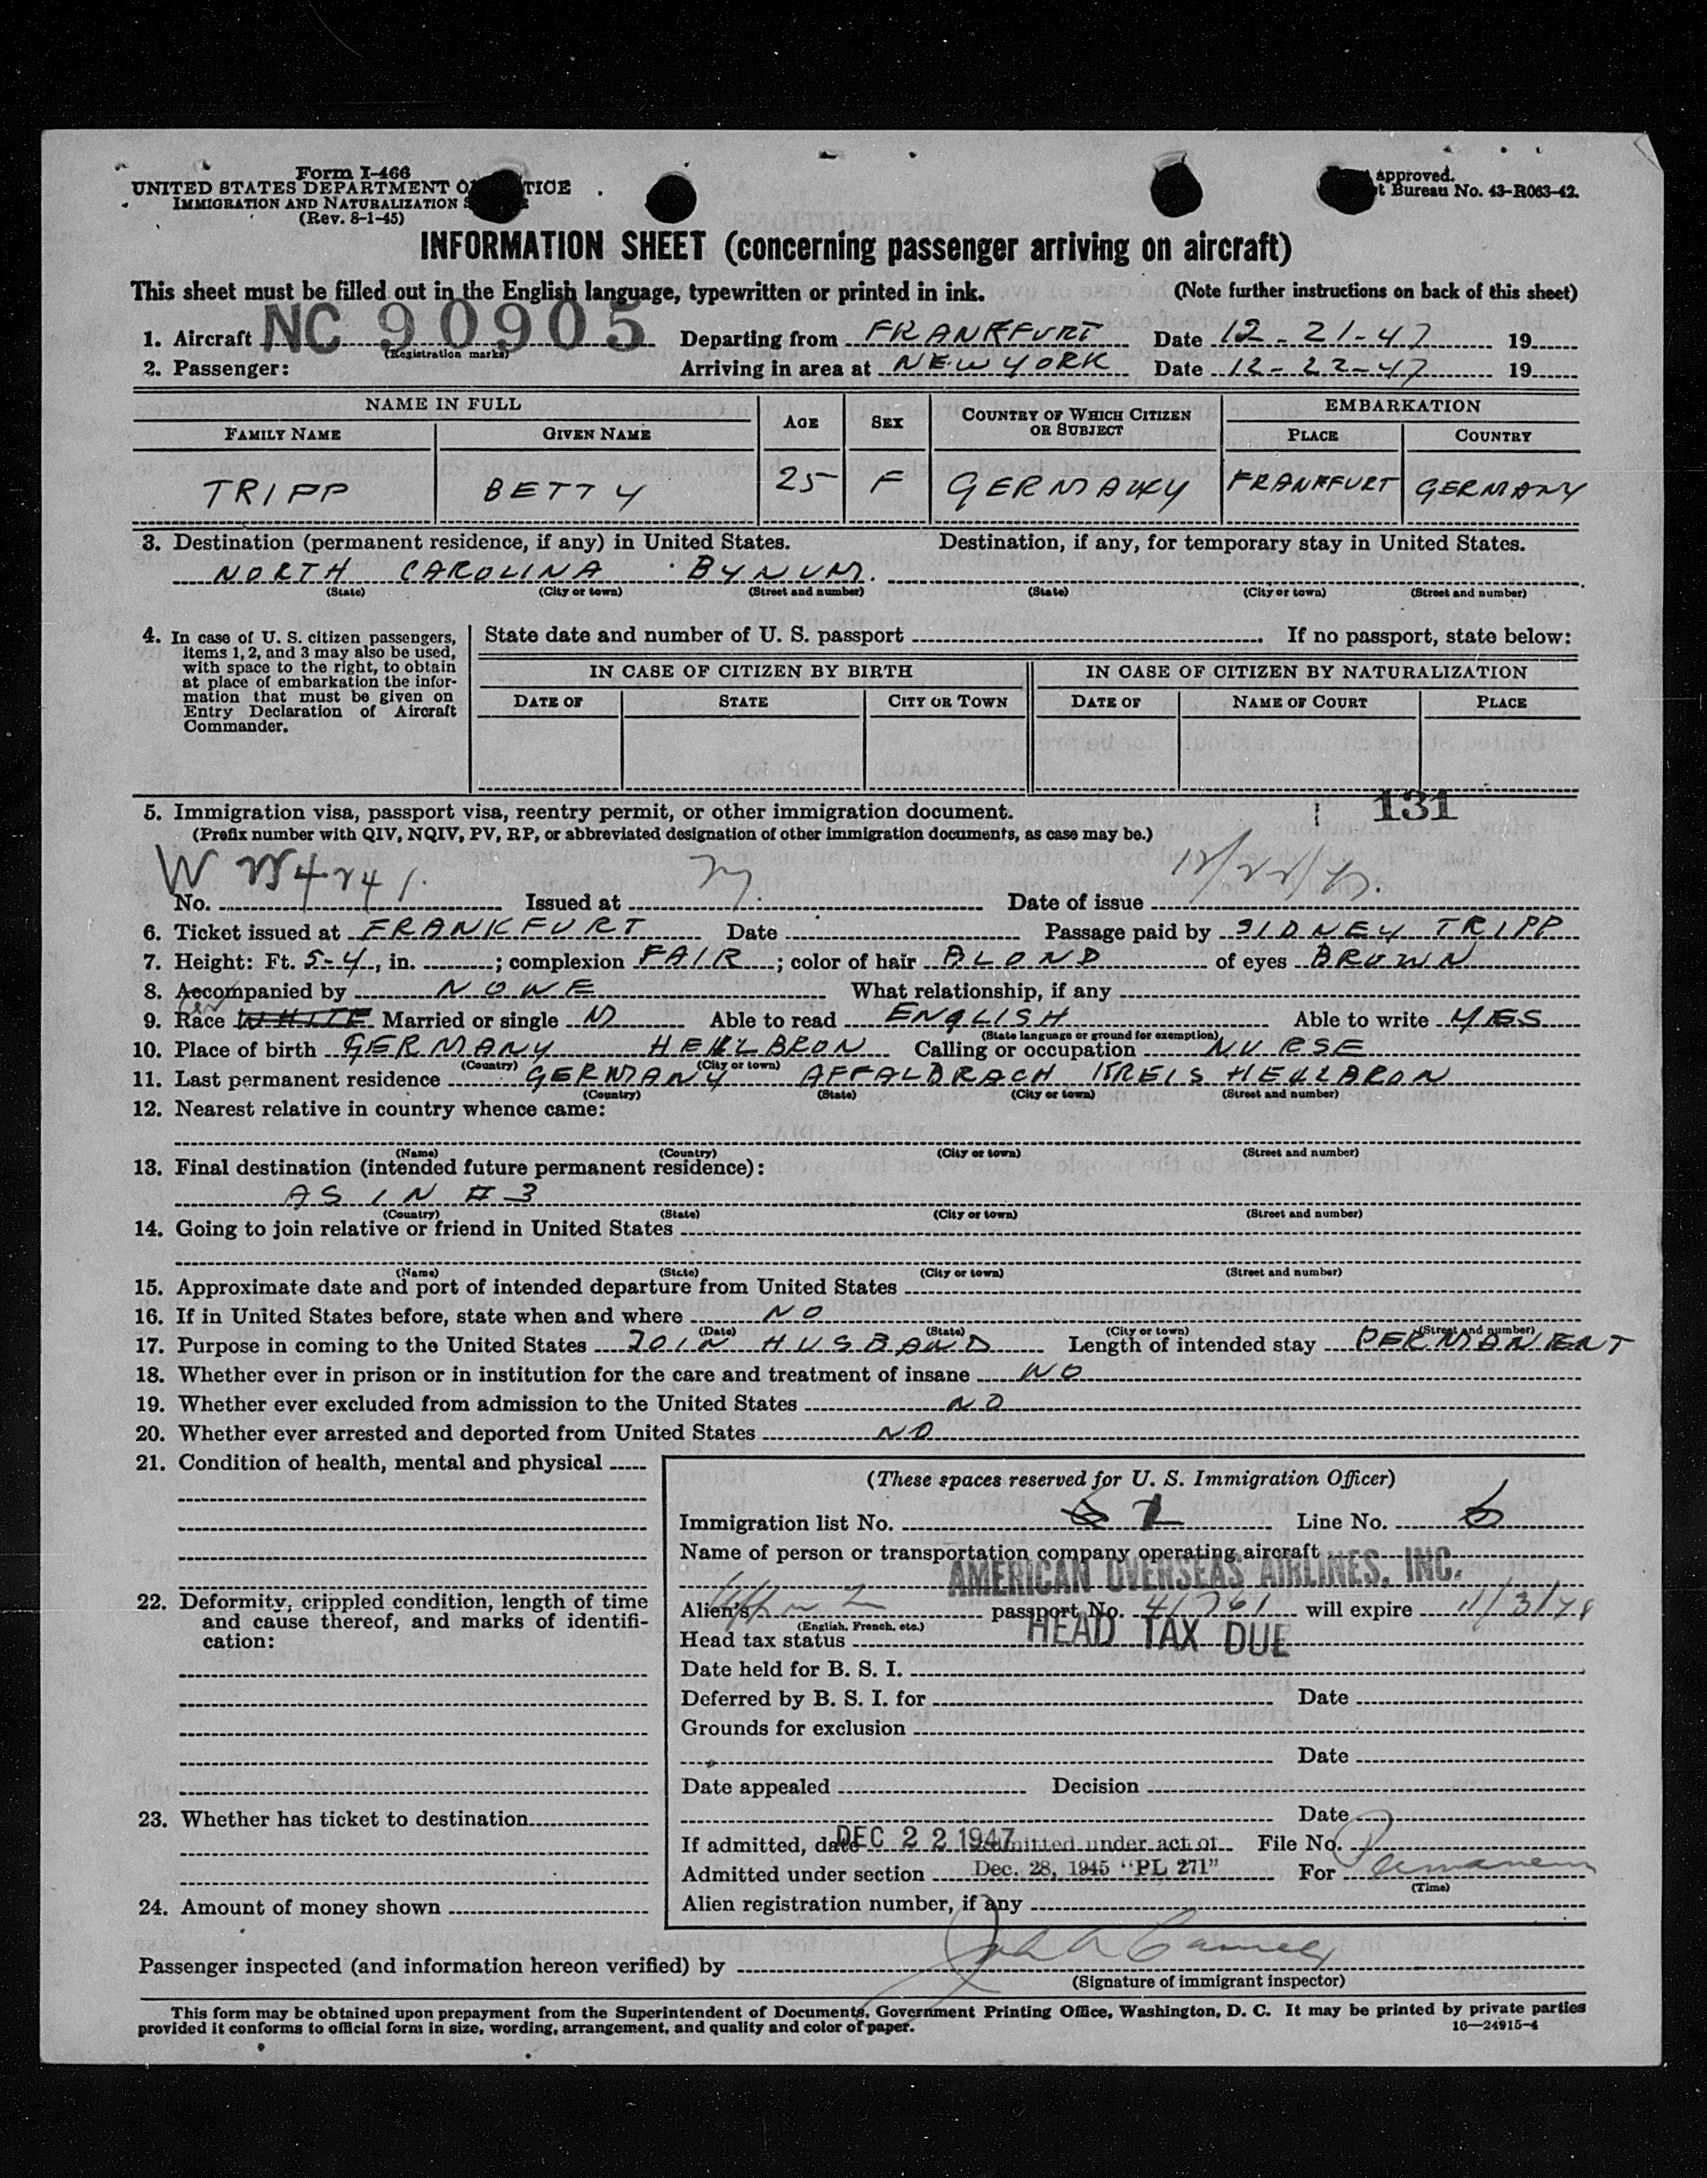 Form I-466
UNITED STATES DEPARTMENT OF JUSTICE
IMMIGRATION AND NATURALIZATION
(Rev. 8-1-45)
approved.
Bureau No. 43-R063-42.
INFORMATION SHEET (concerning passenger arriving on aircraft)
This sheet must be filled out in the English language, typewritten or printed in ink. (Note further instructions on back of this sheet)
1. Aircraft NC 90905 (Registration marks) Departing from FRANKFURT Date 12-21-47 19
2. Passenger: Arriving in area at NEW YORK Date 12-22-47 19
NAME IN FULL AGE SEX COUNTRY OF WHICH CITIZEN OR SUBJECT EMBARKATION
FAMILY NAME GIVEN NAME PLACE COUNTRY
TRIPP BETTY 25 F GERMANY FRANKFURT GERMANY
3. Destination (permanent residence, if any) in United States. Destination, if any, for temporary stay in United States.
NORTH CAROLINA BYNUM.
(State) (City or town) (Street and number) (State) (City or town) (Street and number)
4. In case of U. S. citizen passengers, items 1, 2, and 3 may also be used, with space to the right, to obtain at place of embarkation the information that must be given on Entry Declaration of Aircraft Commander.
State date and number of U. S. passport If no passport, state below:
IN CASE OF CITIZEN BY BIRTH IN CASE OF CITIZEN BY NATURALIZATION
DATE OF STATE CITY OR TOWN DATE OF NAME OF COURT PLACE
5. Immigration visa, passport visa, reentry permit, or other immigration document. 131
(Prefix number with QIV, NQIV, PV, RP, or abbreviated designation of other immigration documents, as case may be.)
No. Issued at Date of issue 12/22/47.
6. Ticket issued at FRANKFURT Date Passage paid by SIDNEY TRIPP
7. Height: Ft. 5-4, in. ; complexion FAIR ; color of hair BLOND of eyes BROWN
8. Accompanied by NONE What relationship, if any
9. Race WHITE Married or single M Able to read ENGLISH Able to write YES
(State language or ground for exemption)
10. Place of birth GERMANY HEILBRON Calling or occupation NURSE
(Country) (City or town)
11. Last permanent residence GERMANY AFFALDRACH KREIS HEILBRON
(Country) (State) (City or town) (Street and number)
12. Nearest relative in country whence came:
(Name) (Country) (City or town) (Street and number)
13. Final destination (intended future permanent residence):
AS IN # 3
(Country) (State) (City or town) (Street and number)
14. Going to join relative or friend in United States
(Name) (State) (City or town) (Street and number)
15. Approximate date and port of intended departure from United States
16. If in United States before, state when and where NO
(Date) (State) (City or town) (Street and number)
17. Purpose in coming to the United States JOIN HUSBAND Length of intended stay PERMANENT
18. Whether ever in prison or in institution for the care and treatment of insane NO
19. Whether ever excluded from admission to the United States NO
20. Whether ever arrested and deported from United States NO
21. Condition of health, mental and physical
22. Deformity, crippled condition, length of time and cause thereof, and marks of identification:
23. Whether has ticket to destination
24. Amount of money shown
(These spaces reserved for U. S. Immigration Officer)
Immigration list No. Line No. 6
Name of person or transportation company operating aircraft
AMERICAN OVERSEAS AIRLINES, INC.
Alien's passport No. 41761 will expire 11/3/48
(English, French, etc.)
Head tax status HEAD TAX DUE
Date held for B. S. I.
Deferred by B. S. I. for Date
Grounds for exclusion
Date
Date appealed Decision
Date
If admitted, date DEC 22 1947 Admitted under act of File No.
Admitted under section Dec. 28, 1945 "PL 271" For Permanent
(Time)
Alien registration number, if any
Passenger inspected (and information hereon verified) by
(Signature of immigrant inspector)
This form may be obtained upon prepayment from the Superintendent of Documents, Government Printing Office, Washington, D. C. It may be printed by private parties
provided it conforms to official form in size, wording, arrangement, and quality and color of paper. 16—24915-4